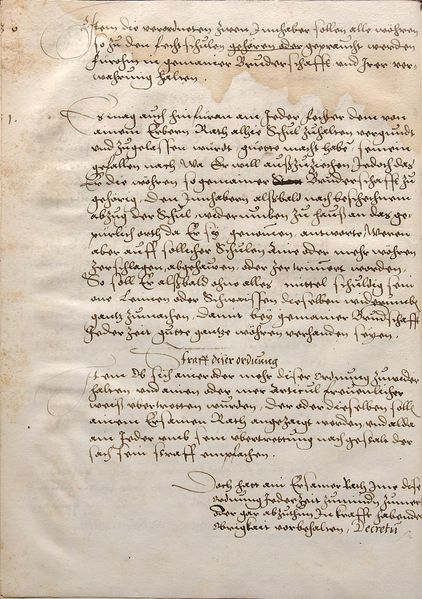 Item die verordneten zwen Innhaber sollen alle wöhren
so zu den fecht schulen gehören oder gepraucht werden
fürohin in gemainer Bruderschafft und Irer ver-
wahrung halten.
Es mag auch hinfüran ain Jeder fechter dem von
ainem Erbern Rath alhie Schul zuhalten vergundt
und zugelassen würdt guette macht habe seinem
gefallen nach Wa Er will auffzuziehen Jedoch das
Er die wöhren so gemainer Bruderschafft zu
gehörig, den Innhabern alßbald nach beschechnem
abzug der Schul, widerumben zu hauß an das ge-
pürlich orth da Er sy genomen, antworte, Wa
aber auff sollicher Schülen Aine oder mehr wöhren
zerschlagen, abgehauen, oder zertrimert worden
So soll Er alßbald ohne alles mittel schuldig sein
one Lennen oder Schweissen dieselben widerumb
gantz zumachen, damit bey gemainer Brudschafft
Jeder zeit gutte gantze wöhren verhanden seyen.
Straff diser ordnung
Item Ob sich ainer oder mehr diser Ordnung zuwider
halten und ainen oder mer Articul freuenlicher
weiß übertretten wurden, der oder dieselben solln
ainem Ersamen Rath angezaigt werden, und alda
ain Jeder umb sein übertrettung nach gestalt der
sach sein straff empfachen.
Doch hatt ain Ersamer Rath Ime dise
ordnung Jederzeit zumindern zumern
Oder gar abzuthun In krafft habender
Obrigkait vorbehalten, Decretum